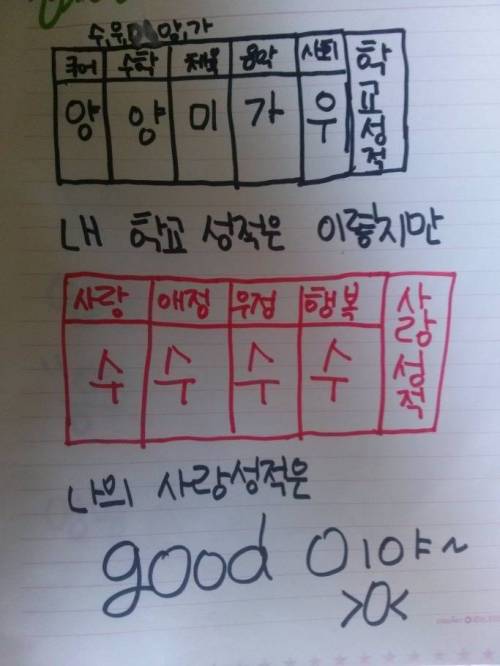 수,우,미,양,가
국어 수학 체육 음악 사회 학교성적
양 양 미 가 우
내 학교 성적은 이렇지만
사랑 애정 우정 행복 사랑성적
수 수 수 수
나의 사랑성적은
good 이야~
>0<